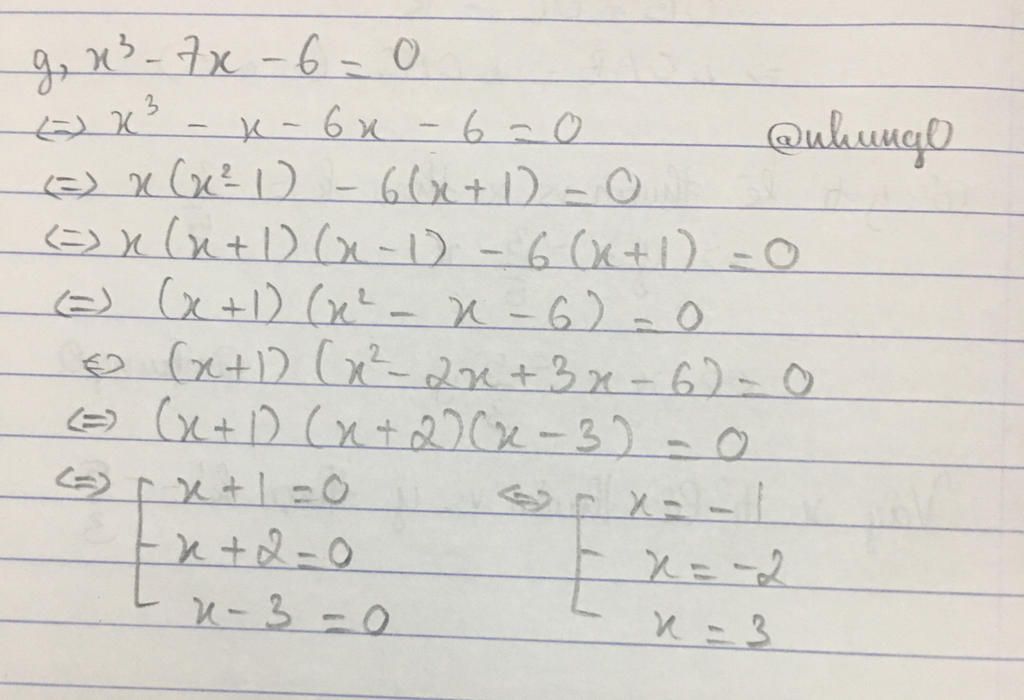 g, x³ - 7x - 6 = 0
<=> x³ - x - 6x - 6 = 0
@nhung0
<=> x(x² - 1) - 6(x + 1) = 0
<=> x(x + 1)(x - 1) - 6(x + 1) = 0
<=> (x + 1)(x² - x - 6) = 0
<=> (x + 1)(x² - 2x + 3x - 6) = 0
<=> (x + 1)(x + 2)(x - 3) = 0
<=> [ x + 1 = 0 <=> [ x = -1
x + 2 = 0 x = -2
x - 3 = 0 x = 3